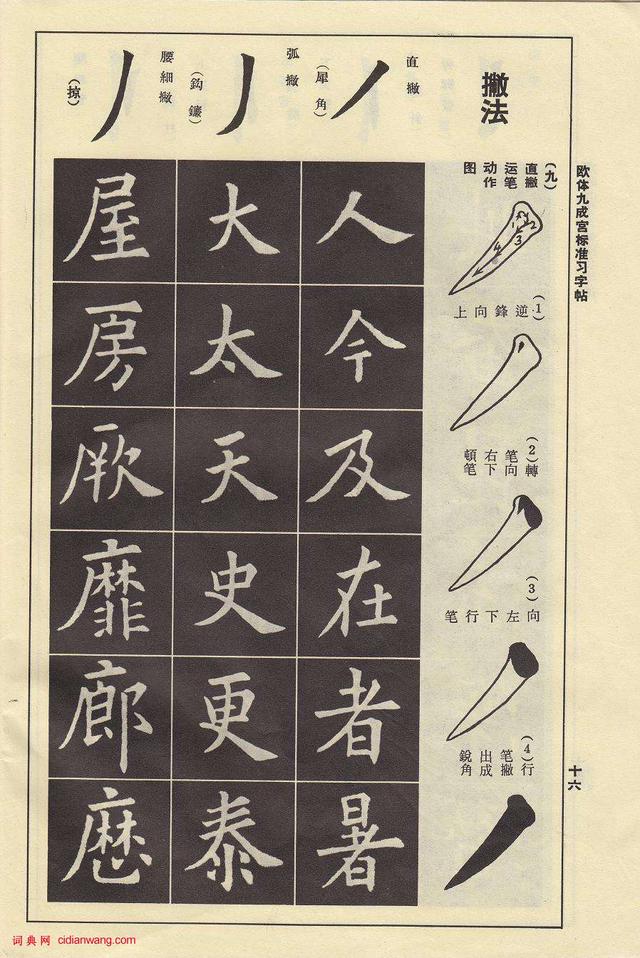 欧体九成宫标准习字帖
十六
撇法
直撇
(犀角)
弧撇
(鈎鐮)
腰細撇
(掠)
(九)直撇运笔动作图
1
2
3
4
(1)逆鋒向上
(2)轉笔向右下頓笔
(3)向左下行笔
(4)行笔撇出成銳角
人今及在者暑
大太天史更泰
屋房厥靡廊歷
词典网 cidianwang.com